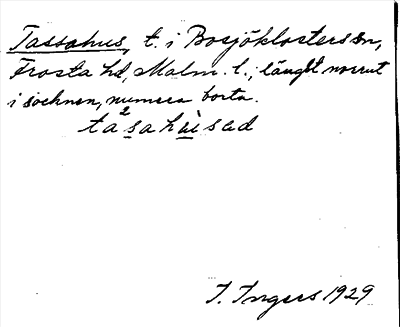 Tassahus, t. i Bosjöklosters sn,
Frosta hd, Malm. l.; längst norrut
i socknen, numera borta.
ta²sahùsad
I. Ingers 1929